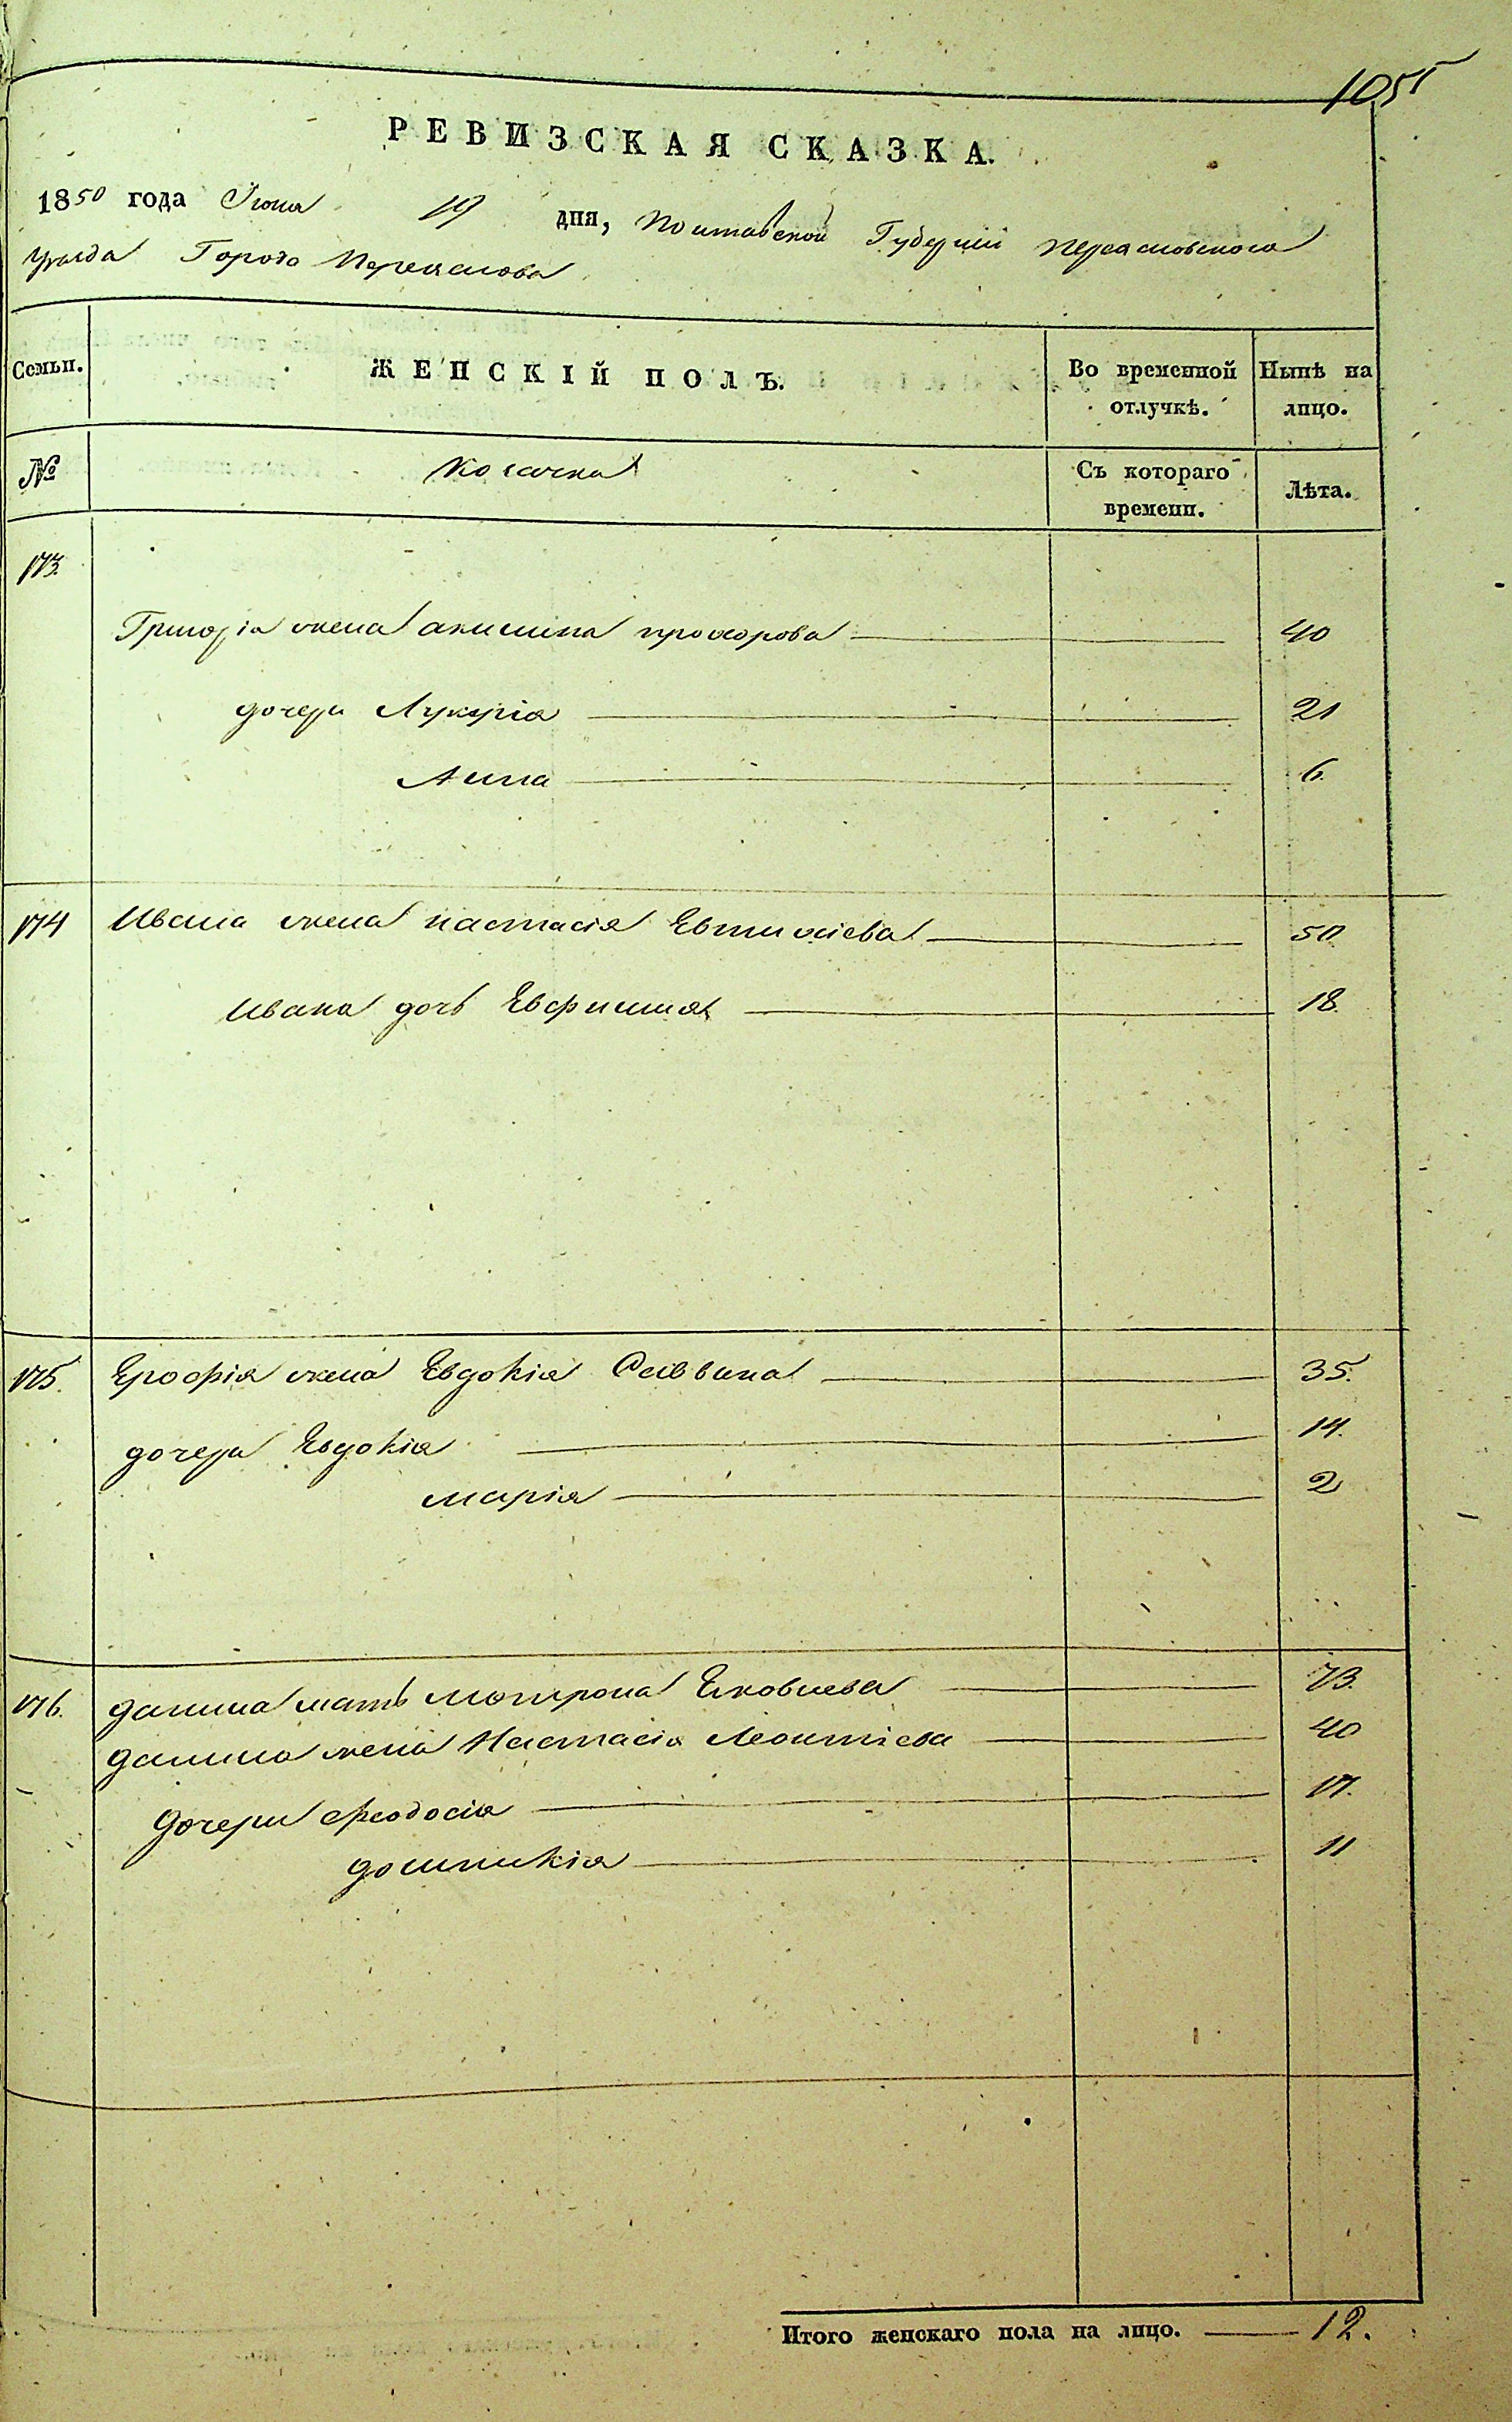 1055
РЕВИЗСКАЯ СКАЗКА.
1850 года Июня 19 дня, Полтавской Губернiи Переясловского
уезда Города Переяслова
Семьи. ЖЕНСКІЙ ПОЛЪ. Во временной отлучкѣ. Нынѣ на лицо.
№ Козачка Съ котораго времени. Лѣта.
173.
Григорiя жена акилина прохорова 40
дочери Лукерiя 21
Анна 6.
174 Ивана жена настасiя Евтихiева 50
Ивана дочь Евфимия 18.
175. Ерофiя жена Евдокiя Саввина 35.
дочери Евдокiя 14.
марiя 2
176. данила мать мотрона Яковлева 73.
данила жена Настасiя Леонтiева 40
дочери феодосiя 17.
домникiя 11
Итого женскаго пола на лицо. 12.